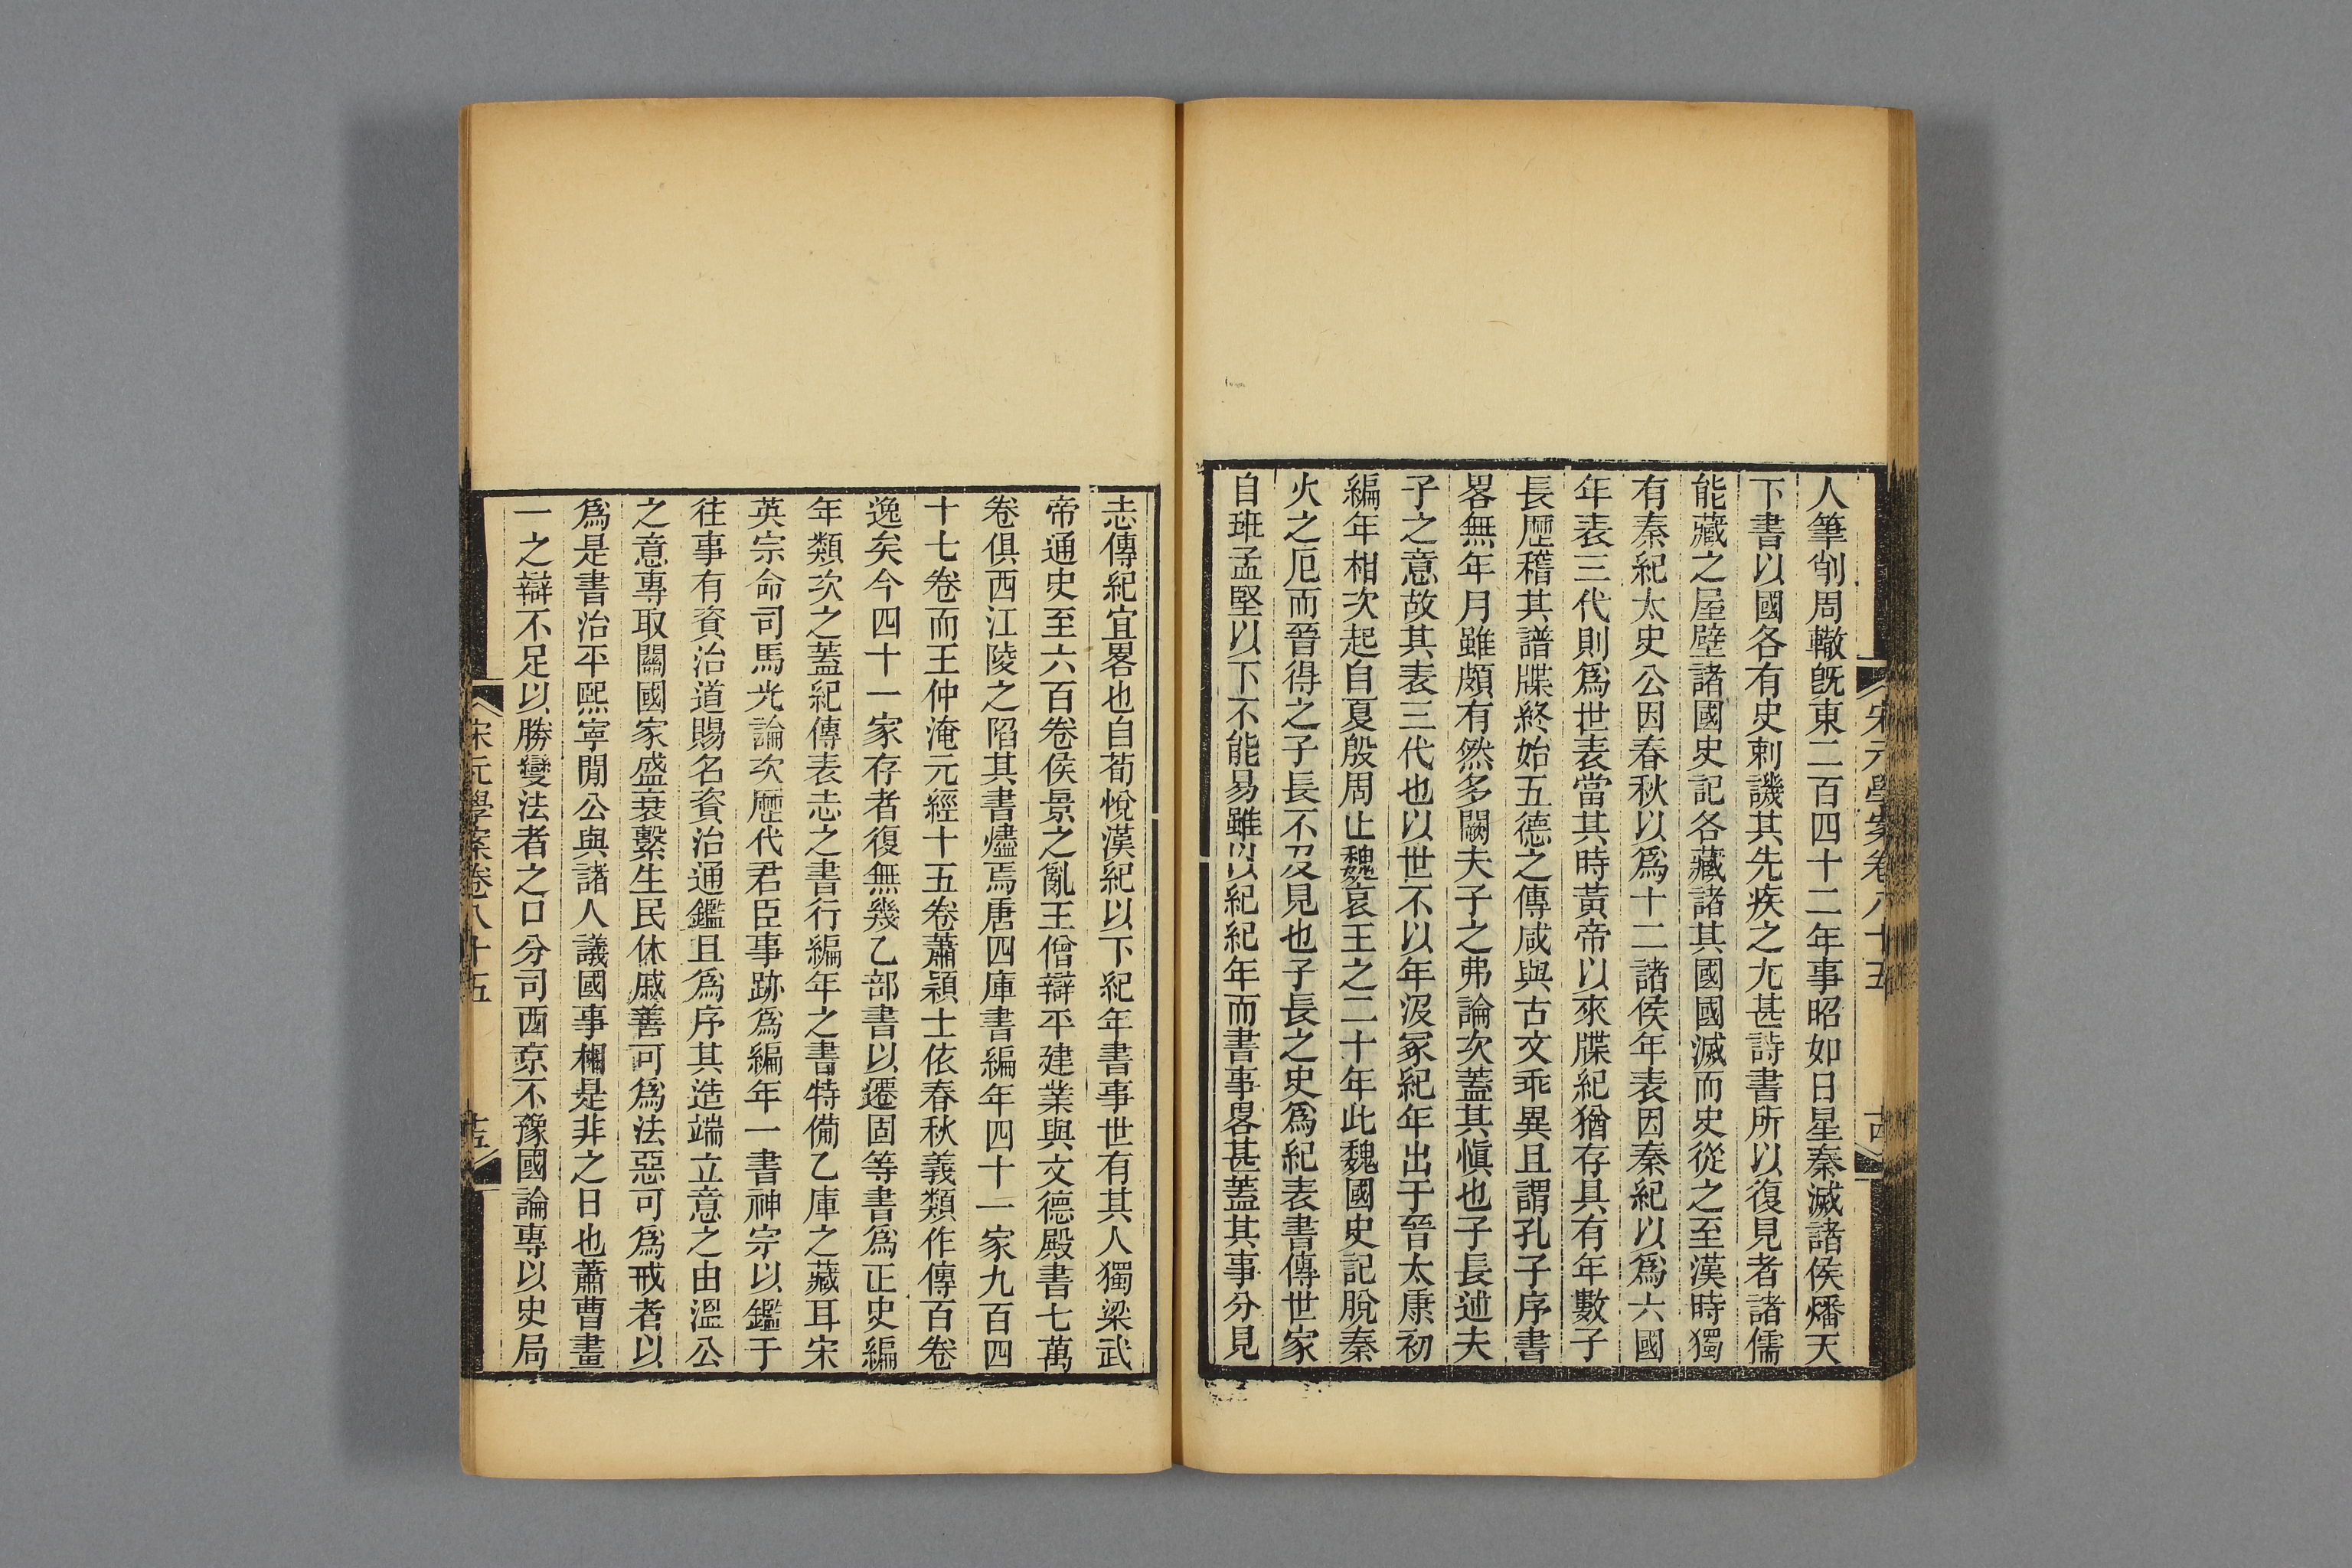 宋元學案卷八十五
人筆削周轍旣東二百四十二年事昭如日星秦滅諸侯燔天
下書以國各有史刺譏其先疾之尤甚詩書所以復見者諸儒
能藏之屋壁諸國史記各藏諸其國國滅而史從之至漢時獨
有秦紀太史公因春秋以爲十二諸侯年表因秦紀以爲六國
年表三代則爲世表當其時黃帝以來牒紀猶存具有年數子
長歷稽其譜牒終始五德之傳咸與古文乖異且謂孔子序書
畧無年月雖頗有然多闕夫子之弗論次蓋其愼也子長述夫
子之意故其表三代也以世不以年汲冢紀年出于晉太康初
編年相次起自夏殷周止魏哀王之二十年此魏國史記脫秦
火之厄而晉得之子長不及見也子長之史爲紀表書傳世家
自班孟堅以下不能易雖以紀紀年而書事畧甚蓋其事分見
志傳紀宜畧也自荀悅漢紀以下紀年書事世有其人獨梁武
帝通史至六百卷侯景之亂王僧辯平建業與文德殿書七萬
卷俱西江陵之陷其書燼焉唐四庫書編年四十一家九百四
十七卷而王仲淹元經十五卷蕭穎士依春秋義類作傳百卷
逸矣今四十一家存者復無幾乙部書以遷固等書爲正史編
年類次之蓋紀傳表志之書行編年之書特備乙庫之藏耳宋
英宗命司馬光論次歷代君臣事跡爲編年一書神宗以鑑于
往事有資治道賜名資治通鑑且爲序其造端立意之由溫公
之意專取關國家盛衰繫生民休戚善可爲法惡可爲戒者以
爲是書治平熙寧閒公與諸人議國事相是非之日也蕭曹畫
一之辯不足以勝變法者之口分司西京不豫國論專以史局
宋元學案卷八十五